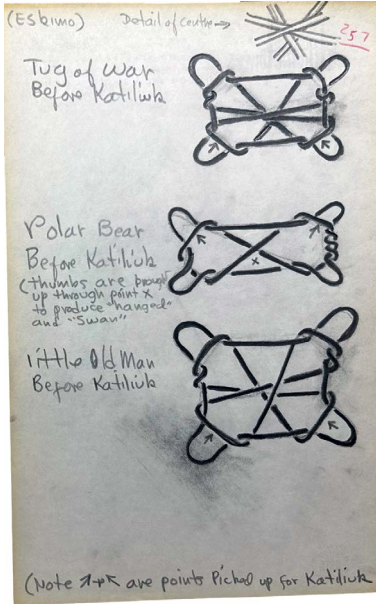 (Eskimo)
Detail of centre→
257
Tug of War
Before Katiliuk
Polar Bear
Before Katiliuk
(thumbs are brought
up through point x
to produce "hanged"
and "Swan"
x
Little Old Man
Before Katiliuk
(Note ↗+↖ are points Picked up for Katiliuk